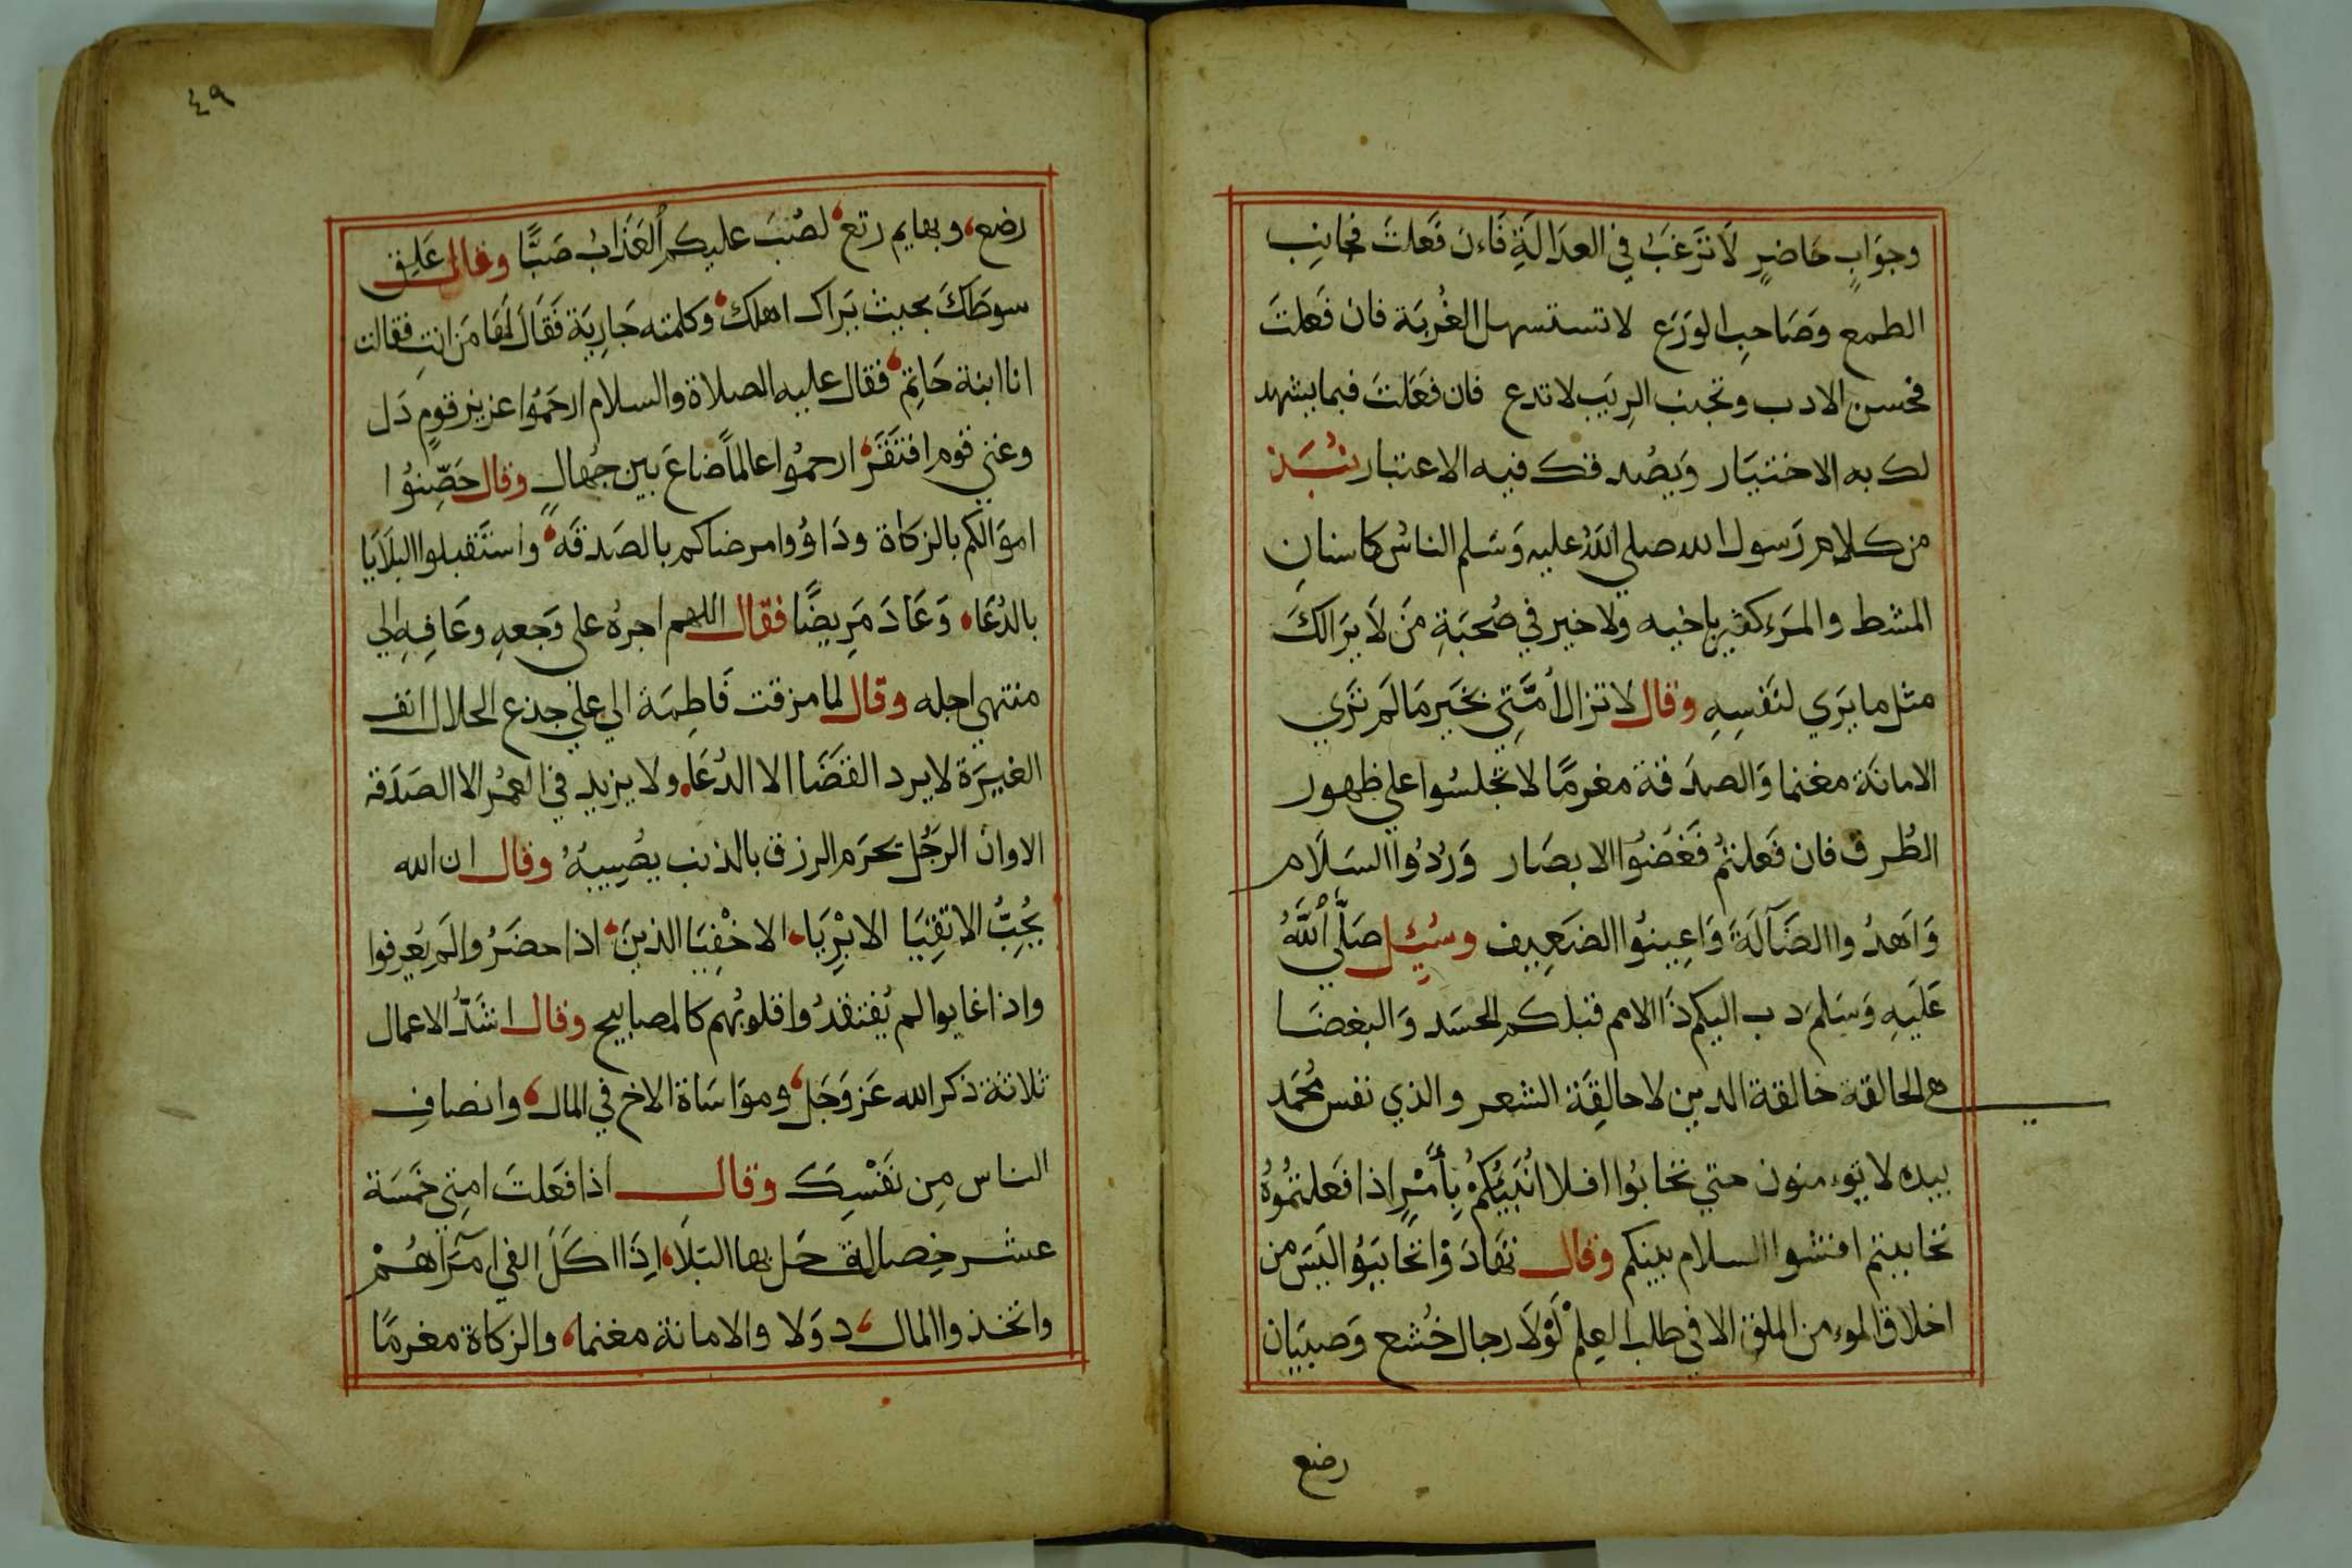 وجوابٍ حاضرٍ لا ترغب في العدالةِ فاءن فعلت فجانب
الطمع وصاحب الورع لا تستسهل الغُربة فان فعلت
فحسن الادب وتجنب الريب لا تدع فان فعلت فيما يشهد
لك به الاختيار ويصدقك فيه الاعتبار نُبَذ
من كلام رسول الله صلي الله عليه وسلم الناس كاسنانِ
المشط والمرء كثير باخيه ولا خير في صُحبَةِ من لا يرالك
مثل ما يري لنفسِهِ وقال لا تزال أُمَّتي بخير ما لم تري
الامانة مغنما والصدقة مغرمًا لا تجلسُوا علي ظهور
الطُرق فان فعلتمُ فغضُوا الابصار ورُدُوا السلام
وَاهدُوا الضآلة وَاعِينُوا الضعيف وسُئِل صلّي اللهُ
عليهِ وسلم دب اليكم دَا الامم قبلكم الحسد والبغضا
هي الحالقة حالقة الدين لا حالقِة الشعر والذي نفس مُحمد
بيده لا تؤمنون حتي تحابُوا افلا اُنبيُكمُ بِأَمْرٍ اذا فعلتمُوهُ
تحاببتم افشوا السلام بينكم وقال تهادوْا تحاببوُا ليس من
اخلاق الموءمن الملق الا في طلب العِلمْ لَوْلَا رجال خُشع وصبيان
رضع
٤٩
رضع، وبهايم رتع، لصُبَ عليكم العَذَابُ صَبًّا وقال عَلِق
سوطكَ بحيث يراك اهلك، وكلمته جارِية فقال لها من انتِ فقالت
انا ابنة حاتِم، فقال عليه الصلاة والسلام ارحمُوا عزيز قومٍ ذل
وغني قوم افتقَرَ، ارحموُا عالمًا ضاعَ بين جُهالٍ وقال حَصِّنوُا
اموالكم بالزكاة ودَاوُوا مرضاكم بالصدقَه، واستقبلوا البلايا
بالدُعَاء وعَادَ مرِيضًا فقال اللهم اجرهُ علي وجعهِ وعافِهِ الي
منتهي اجله وقال لما مزقت فاطِمَة الي علي جذع الحلال انف
الغيرَة لا يرد القضَا الا الدُعَاء ولا يزيد في العمُر الا الصدَقه
الاوان الرجُل يحرم الرزق بالذنب يصُيبهُ وقال ان الله
يُحِبُّ الاتقِيَا الابْرِيَاء الاخْفِيَا الذين، اذا حضرُوا لم يُعرفوا
واذا غابوا لم يُفتقدُوا قلوبُهم كالمصابيح وقال اشدّ الاعمال
ثلاثة ذكر الله عز وجل، ومواساة الاخ في المال، وانصافِ
الناس مِن نَفْسِكَ وقال اذا فعلت امتِي خمسَة
عشر خِصلة حَل بها البَلَاء، اِذَا اكَلَ الفي امَراهُمْ
واتخذوا المال، دوَلا والامانة مغنما، والزكاة مغرمًا